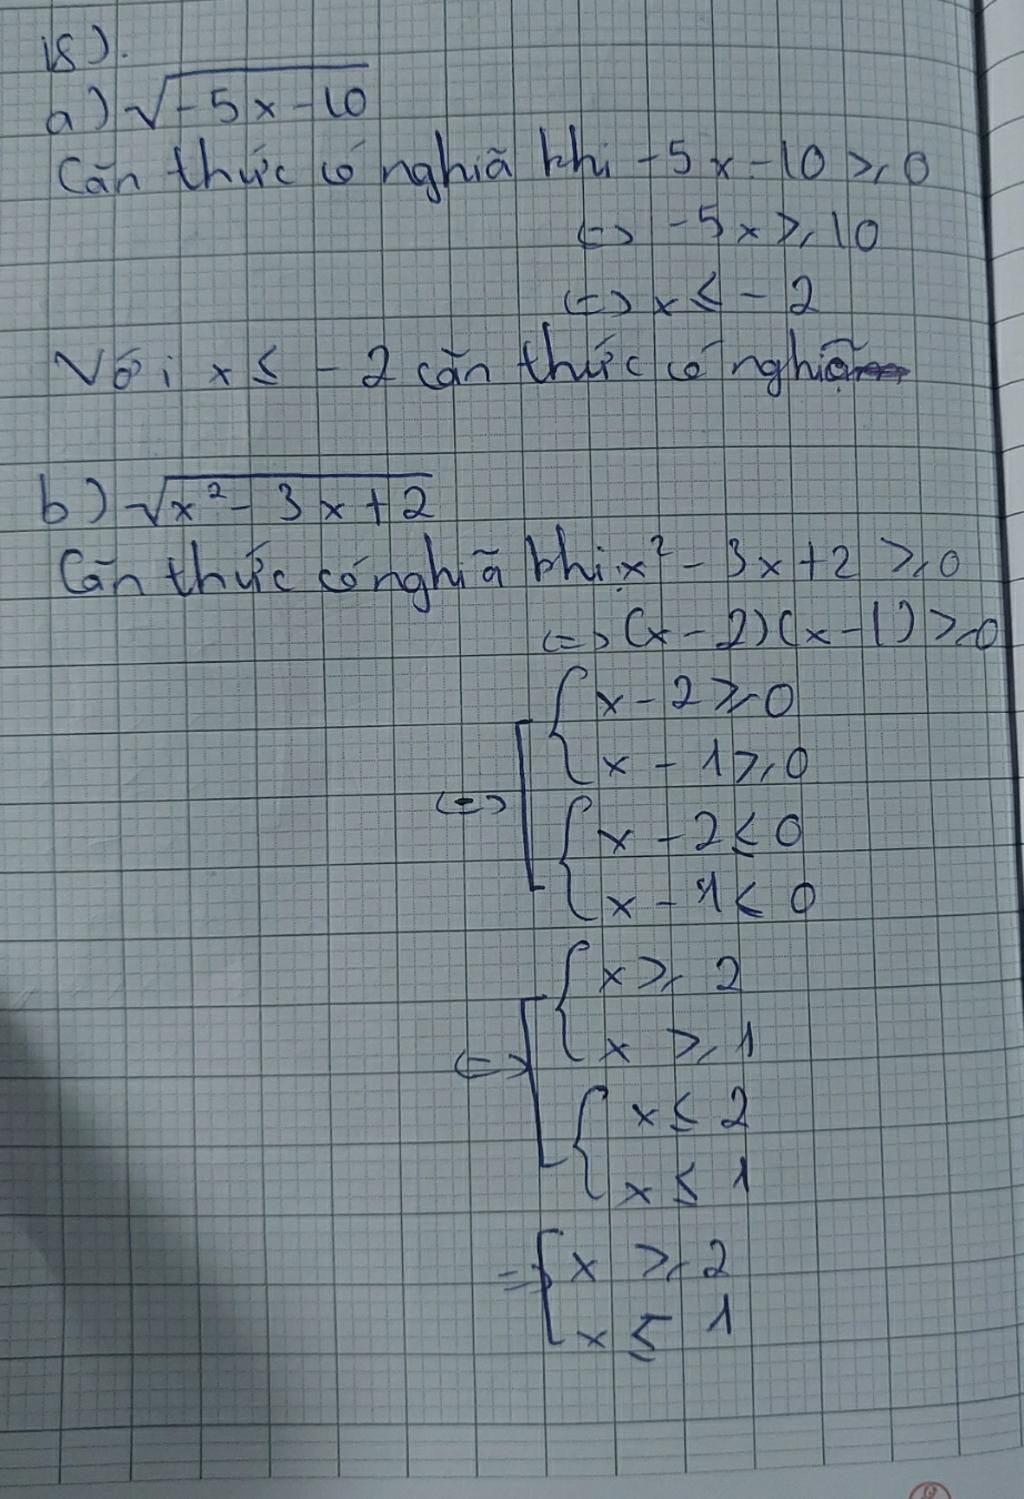 15).
a) √-5x-10
Căn thức có nghiã khi -5x-10 ≥ 0
<=> -5x ≥ 10
<=> x ≤ -2
Với x ≤ -2 căn thức có nghiã
b) √x²-3x+2
Căn thức có nghiã khi x²-3x+2 ≥ 0
<=> (x-2)(x-1) ≥ 0
{ x-2 ≥ 0
x-1 ≥ 0
<=> [
{ x-2 ≤ 0
x-1 ≤ 0
{ x ≥ 2
x ≥ 1
<=> [
{ x ≤ 2
x ≤ 1
= [ x ≥ 2
x ≤ 1